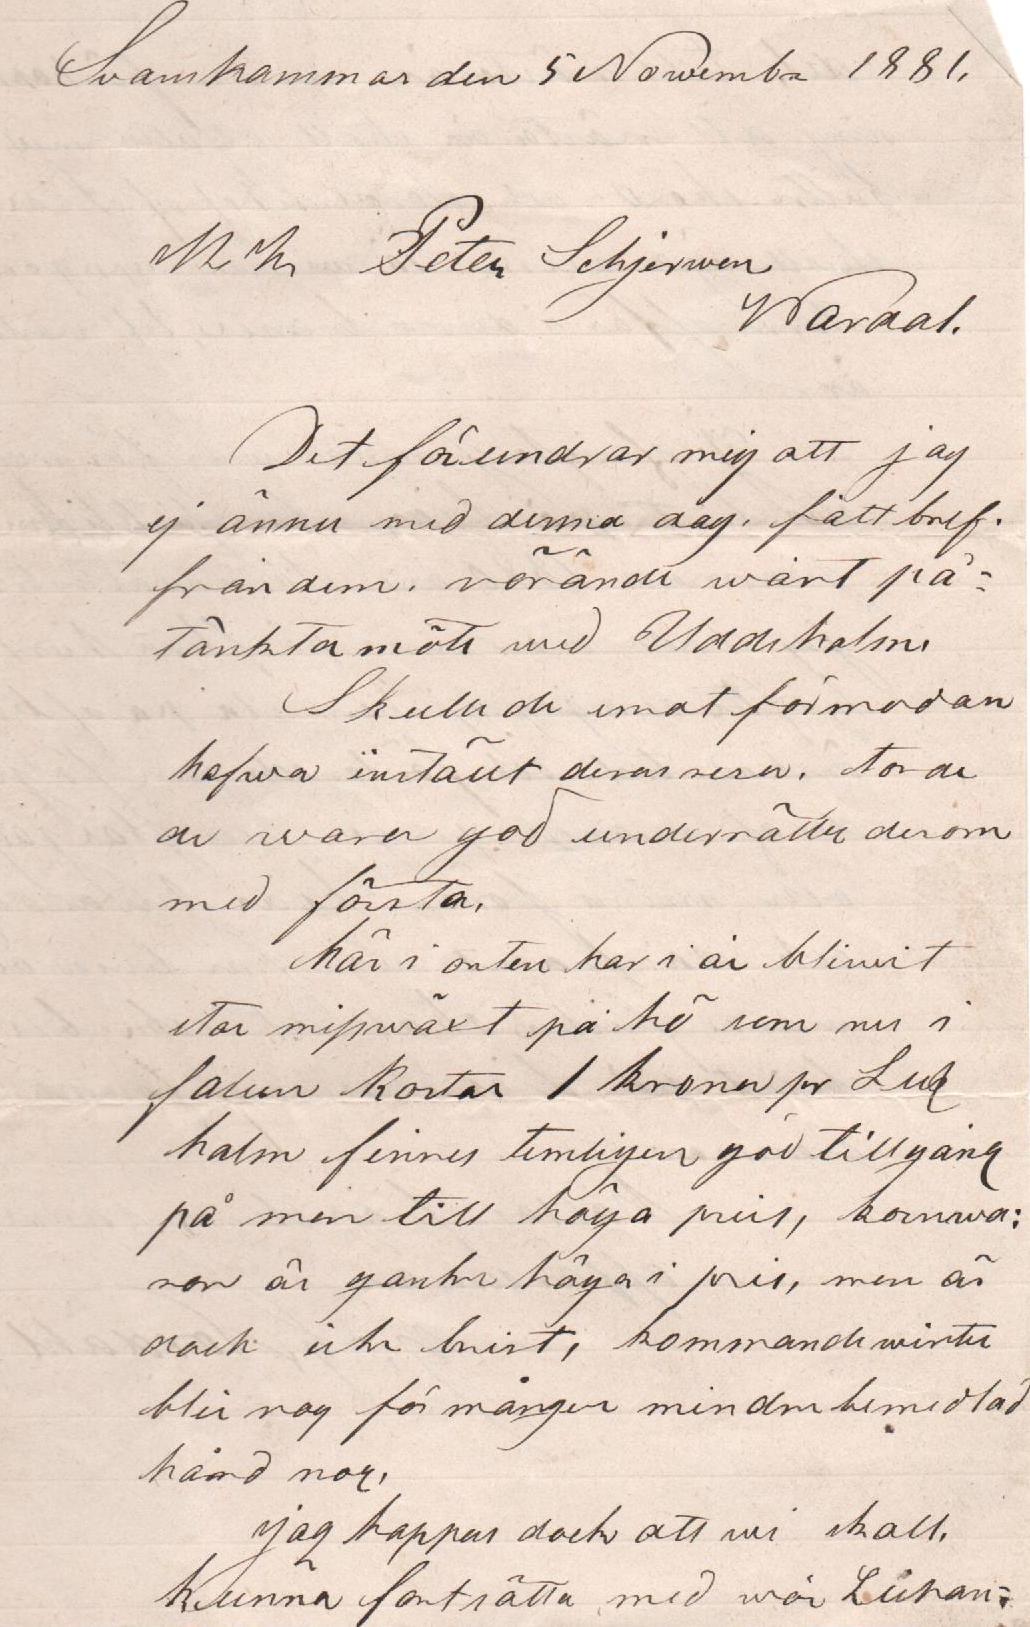 Svanskammar den 5 Novembr 1881.
Peter Schjerwen
Wardal.
Det förundrar mig att jag
ej ännu med denna dag. fått bref.
från dem. rörande wårt på=
tänkta möte wid Uddeholm.
Skulle de imot förmodan
hafva inställt deras resa. torde
de wara god underrätta derom
med första.
här i orten har i år blivit
stor misswäxt på hö som nu i
falun Kostar 1 krona pr
halm finnes temligen god tillgång
på men till höga pris, kornwa:
ror är ganska höga i pris, men är
dock icke brist, kommande winter
blir nog för mången mindre bemedlad
hård nog.
jag hoppas dock att wi skall.
kunna fortsätta med wår